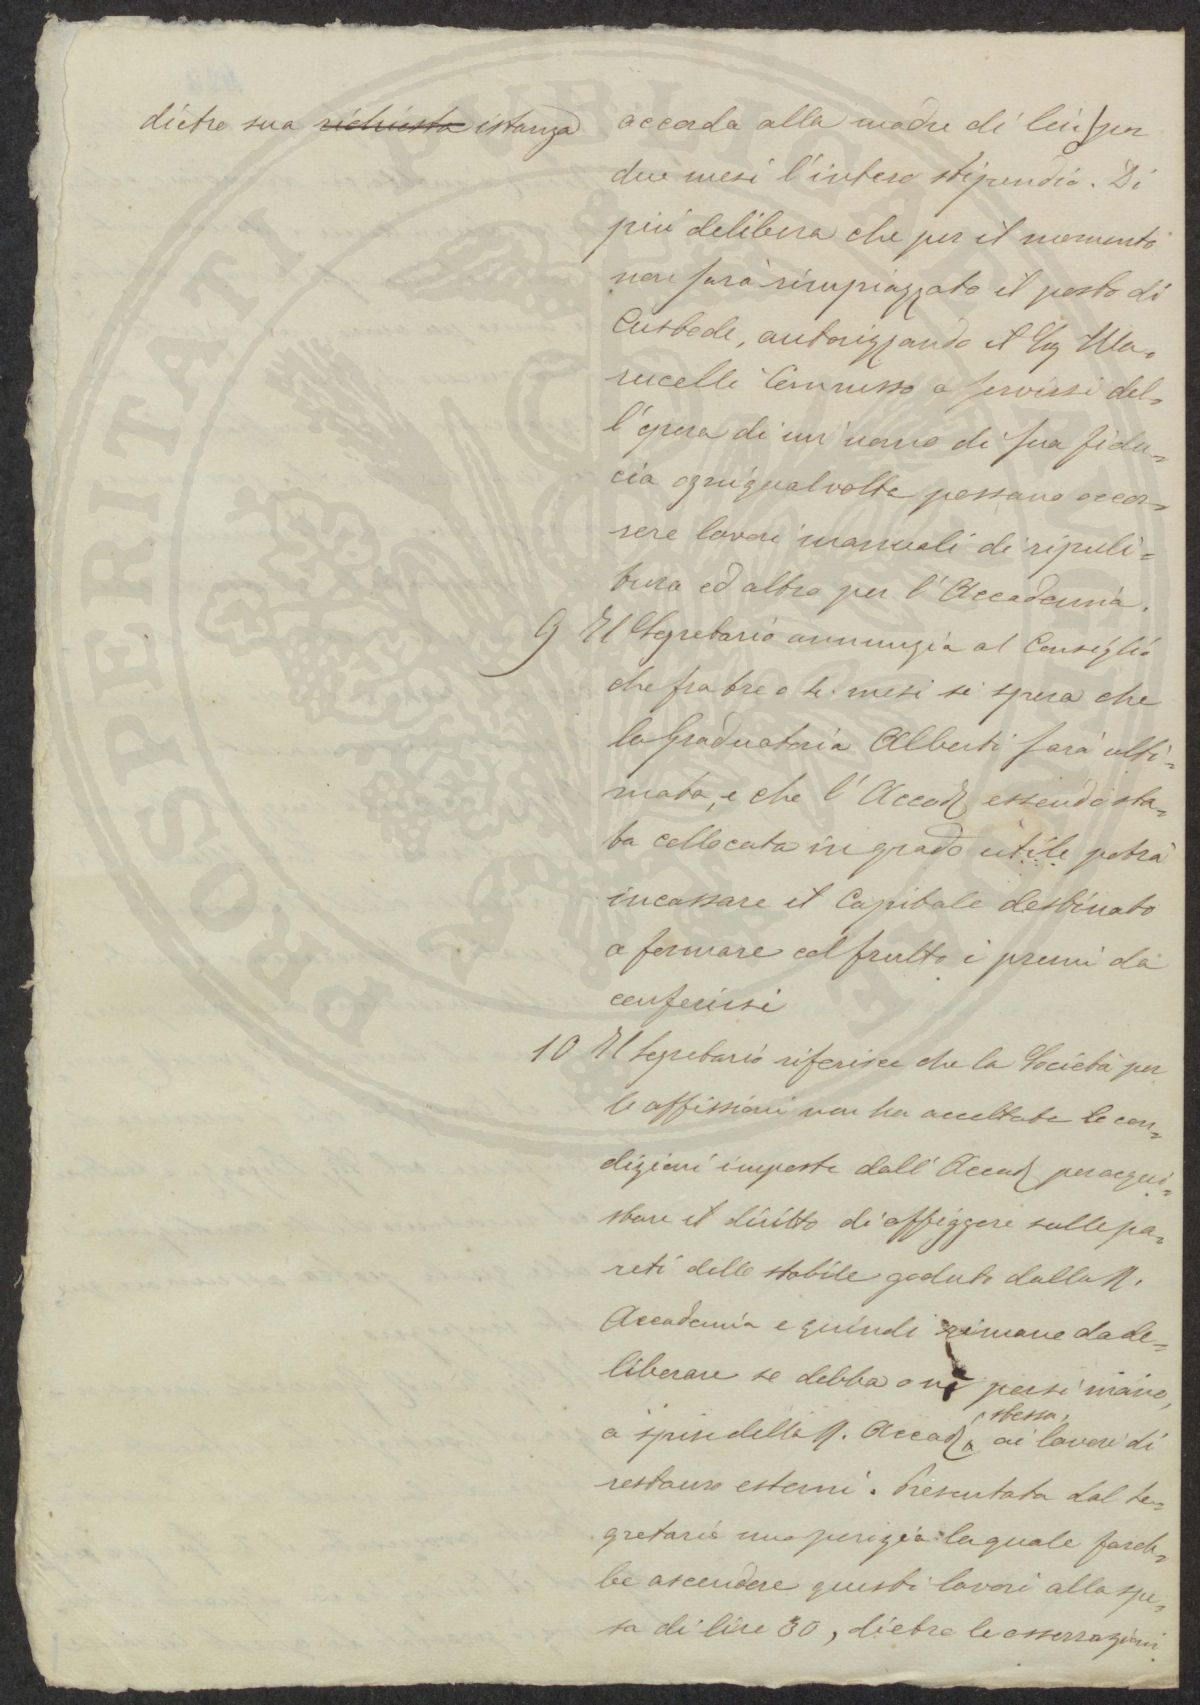 dietro sua richiesta istanza
accorda alla madre di lui per
due mesi l'intero stipendio. Di
più delibera che per il momento
non sarà rimpiazzato il posto di
Custode, autorizzando il Sig Ma=
rucelli Commesso a servirsi del=
l'opera di un'uomo di sua fidu=
cia ogniqualvolta possano occor=
rere lavori manuali di ripuli=
tura ed altro per l'Accademia.
9 Il Segretario annunzia al Consiglio
che fra tre o se. mesi si spera che
la Graduatoria Alberti sarà ulti=
mata, e che l'Accad essendo sta=
ta collocata in grado utile potrà
incassare il Capitale destinato
a formare col frutto i premi da
conferirsi
10 Il Segretario riferisce che la Società per
le affissioni non ha accettate le con=
dizioni imposte dall'Accad per acqui=
stare il diritto di affiggere sulle pa=
reti dello stabile goduto dalla R.
Accademia e quindi rimane da de=
liberare se debba o nò porsi mano,
a spese della R. Accad stessa, ai lavori di
restauro esterni. Presentata dal Se=
gretario una perizia la quale fareb=
be ascendere questi lavori alla spe=
sa di lire 30, dietro le osservazioni
PROSPERITATI PUBLICAE AUGENDAE